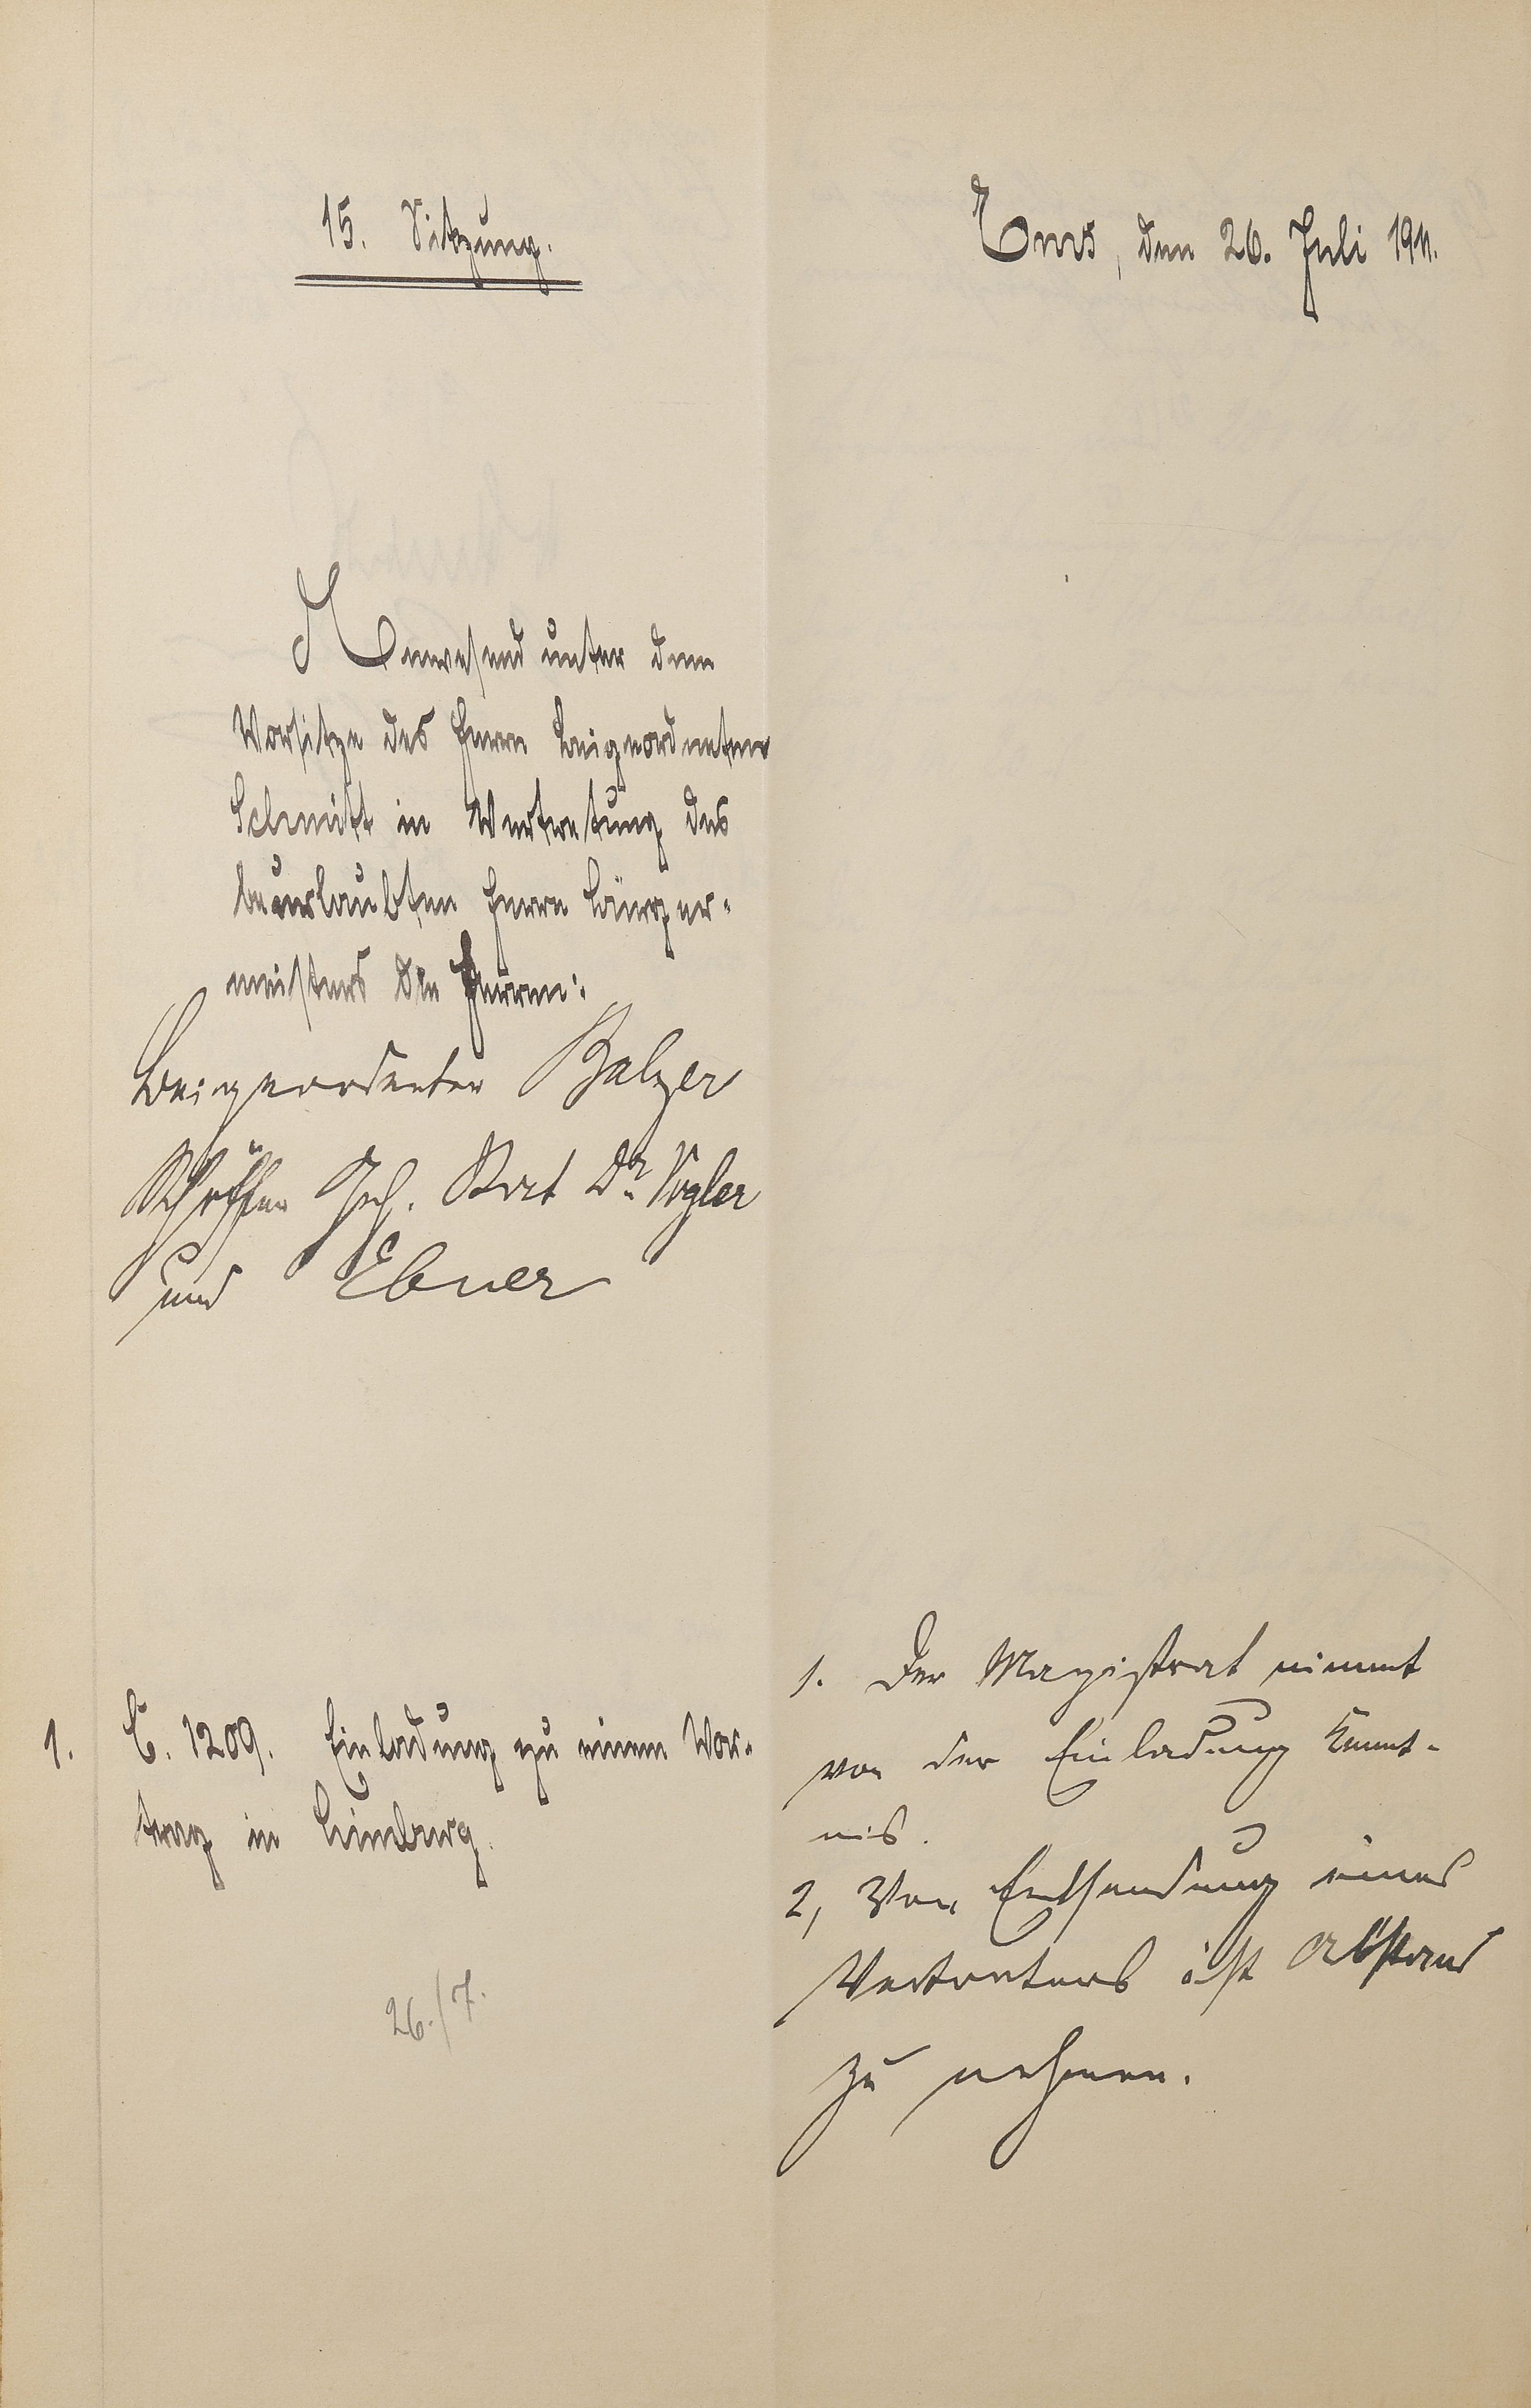 15. Sitzung.
Ems, den 26. Juli 1911.
Anwesend unter dem
Vorsitze des Herrn Beigeordneten
Schmitt in Vertretung des
beurlaubten Herrn Bürger-
meisters die Herren:
Beigeordneter Balzer
Schöffen Geh. Rat Dr. Vogler
und Ebner
1. C. 1209. Einladung zu einem Vor-
trag in Limburg.
26./7.
1. Der Magistrat nimmt
von der Einladung Kennt-
nis.
2, Von Entsendung eines
Vertreters ist Abstand
zu nehmen.